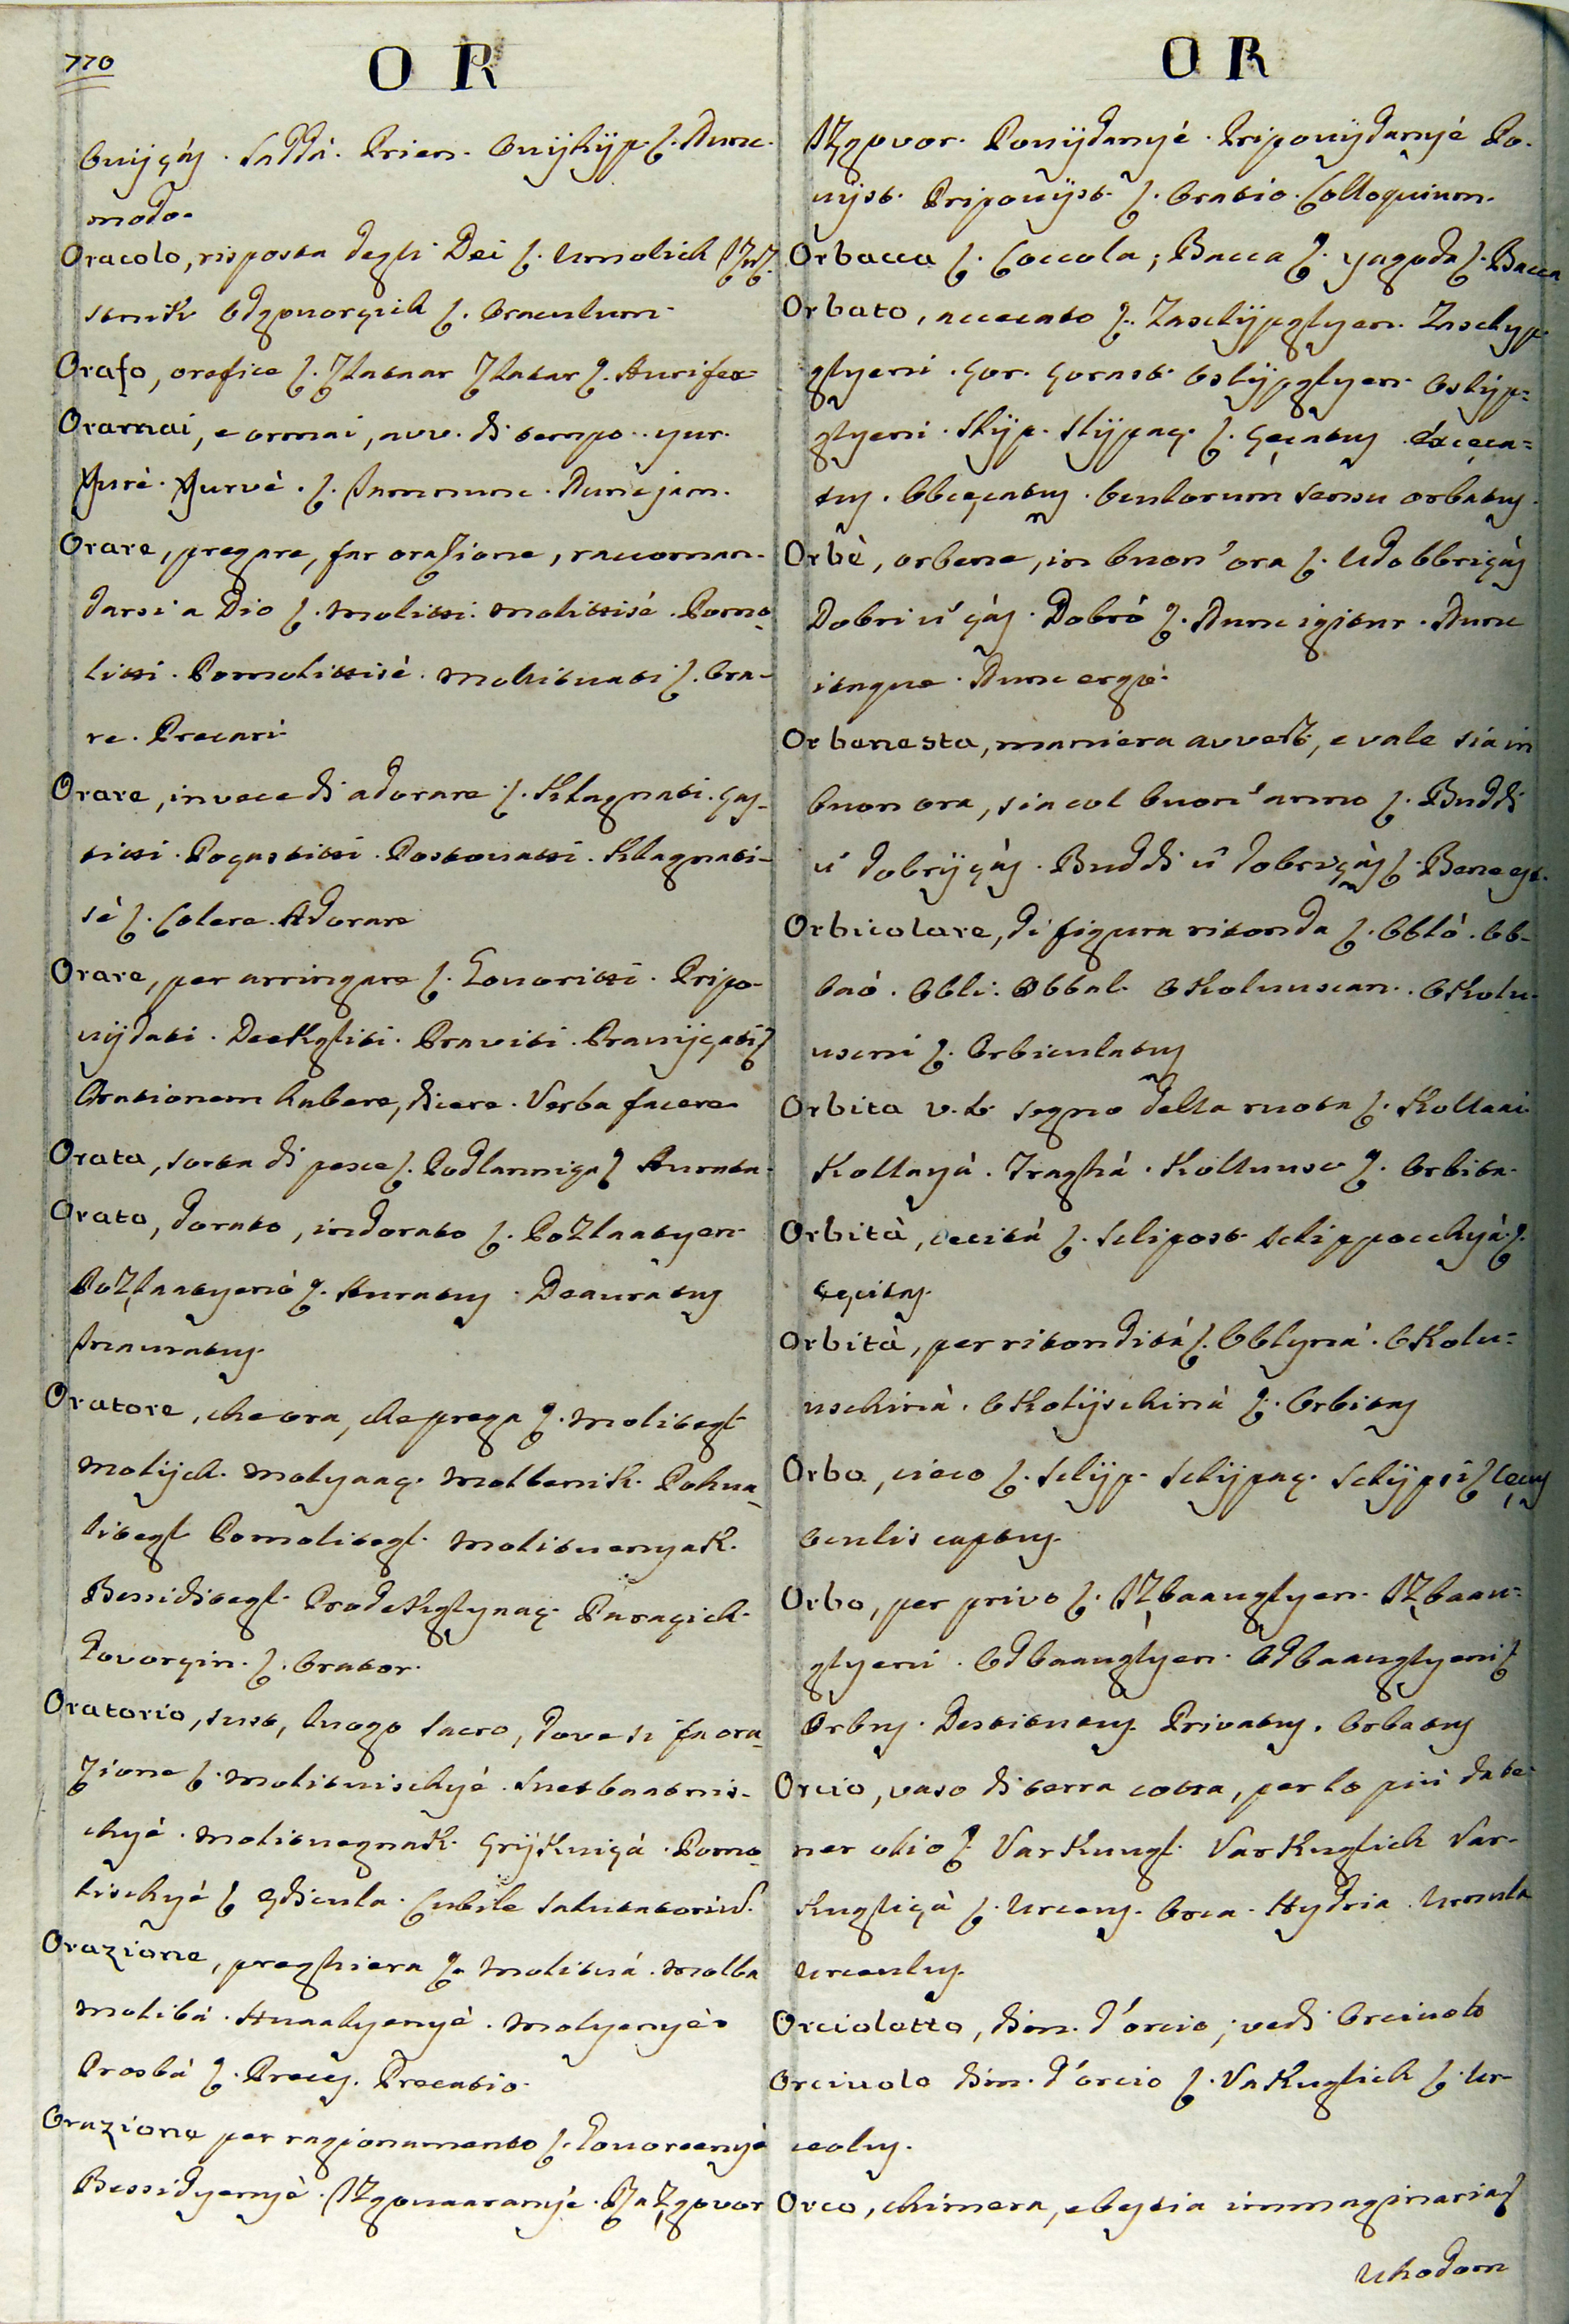 770
O R
Ovijçás. Saddá. Prien. Ovijkijp. Nunc.
modo.
Oracolo, risposta degli Dei Umolich
Odgovorçich Oraculum.
Orafo, orefice Zlataar Zlatar Aurifex
Oramai, e ormai, avv. di tempo. yur.
Yurè. Yurvè. Jamnunc. Nunc jam.
Orare, pregare, far orazione, raccoman-
darsi a Dio molitti. molittisé. Pomo-
litti. Pomolittisè. molituati Ora-
re. Precari
Orare, invece di adorare Klagnati. ças-
titti. Poçastitti. Postovatti. Klagnati-
sè Colere. Adorare
Orare, per arringare Govoritti. Pripo-
vijdati. Dekgliti. Praviti. Pravijçati
Orationem habere, dicere. Verba facere
Orata, sorta di pesce. Podlanniça Aurata.
Orato, dorato, indorato Pozlaatyen
Pozlaatyenò Auratus. Deauratus
Inauratus.
Oratore, che ora, che prega molitegl
molijch. molyaaç. molbenik. Pohva-
litegl Pomolitegl. molituenyak.
Bessiditegl. Prodekglyaaç. Paraçich.
Govorçin. Orator.
Oratorio, sust, luogo sacro, dove si fa ora-
zione molituischyé. Suetbaatnis-
chyé. molituegnak. Pomo-
lischyé Ædicula. Cubile salutatoriu.
Orazione, preghiera molituá. molba
molibá. Huaalyenyè. molyenyè.
Prosbá Preces. Precatio.
Orazione per ragionamento Govorcenyè
Bessidyenyè. Izgovaaranyé. Razgovor
O R
Izgovor. Povijdanyé. Pripovijdanyé Po-
vijst. Pripovijst. Oratio. Colloquium.
Orbacca Coccola; Bacca yagoda Bacca
Orbato, accecato Zaslijpglyen. Zaslijp-
glyeni. çor. çorast. Oslijpglyen. Oslijp=
glyeni. Slijp. Slijpaç. Cęcatus. éxcęca=
tus. Obcęcatus. Oculorum sensu orbatus.
Orbè, orbene, in buon'ora Udobbriçás
Dobri ù çás. Dobrò Nunc igitur. Nunc
itaque. Nunc ergo.
Orbenesta, maniera avverb, e vale sia in
buon ora, sia col buon'anno Buddi
ù dobrijçás. Buddi ù dobriçás. Bene est.
Orbicolare, di figura ritonda Obló. Ob-
baó. Obli. Obbal. Okoluuscan. Okolu-
uscni Orbiculatus
Orbita v.l. segno della ruota Kollaai.
Kollayà. Traghá. Kolluusc Orbita.
Orbità, cecità Slipost slippochyà
cęcitas.
Orbità, per ritondità Oblynà. Okolu=
uschinà. Okolijschinà Orbitas
Orbo, cieco Slijp. Slijpaç. Slijpsi Cęcus
Oculis captus.
Orbo, per privo Izbaauglyen. Izbaau=
glyeni. Odbaauglyen. Odbaauglyeni
Orbus. Destitutus. Privatus. Orbatus
Orcio, vaso di terra cotta, per lo più da te-
ner olio Varkuugl. Varkuglich Var-
kugliçà Urceus. Orca. Hydria. Urnula
Urceulus.
Orciolotto, dim. d'orcio; vedi Orciuolo
Orciuolo dim. d'orcio Vakuglich Ur-
ceolus.
Orco, chimera, e bestia immaginaria
Ukodom